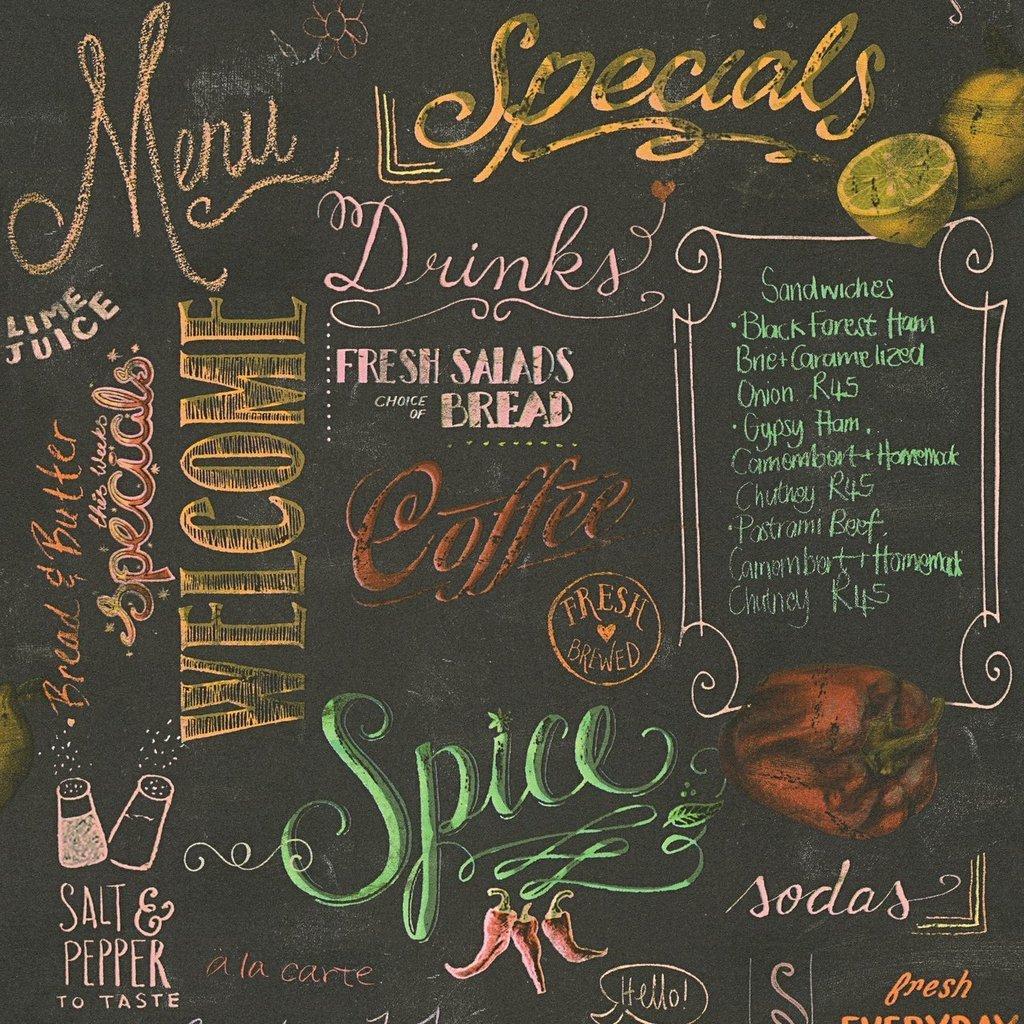 Menu
Specials
Drinks
LIME
JUICE
FRESH SALADS
CHOICE
OF
BREAD
WELCOME
this weeks
specials
Bread & Butter
Coffee
FRESH
BREWED
Sandwiches
• Black Forest Ham
Brie + Caramelized
Onion R45
• Gypsy Ham.
Camembert + Homemade
Chutney R45
• Pastrami Beef.
Camembert + Homemade
Chutney R45
Spice
SALT &
PEPPER
TO TASTE
a la carte
sodas
Hello!
fresh
EVERYDAY